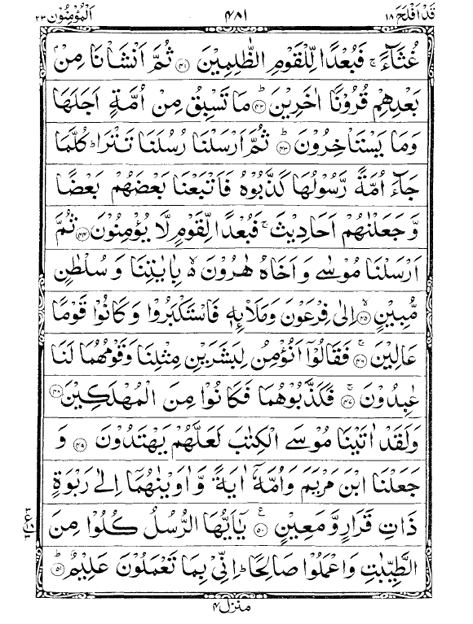 قد افلح ۱۸ ۴۸۱ المؤمنون ۲۳
غُثَآءً ۚ فَبُعْدًا لِّلْقَوْمِ الظّٰلِمِيْنَ ﴿۴۱﴾ ثُمَّ اَنْشَاْنَا مِنْۢ
بَعْدِهِمْ قُرُوْنًا اٰخَرِيْنَ ﴿۴۲﴾ مَا تَسْبِقُ مِنْ اُمَّةٍ اَجَلَهَا
وَمَا يَسْتَاْخِرُوْنَ ﴿۴۳﴾ ثُمَّ اَرْسَلْنَا رُسُلَنَا تَتْرَا ؕ كُلَّمَا
جَآءَ اُمَّةً رَّسُوْلُهَا كَذَّبُوْهُ فَاَتْبَعْنَا بَعْضَهُمْ بَعْضًا
وَّجَعَلْنٰهُمْ اَحَادِيْثَ ۚ فَبُعْدًا لِّقَوْمٍ لَّا يُؤْمِنُوْنَ ﴿۴۴﴾ ثُمَّ
اَرْسَلْنَا مُوْسٰى وَاَخَاهُ هٰرُوْنَ ۙ بِاٰيٰتِنَا وَسُلْطٰنٍ
مُّبِيْنٍ ﴿۴۵﴾ اِلٰى فِرْعَوْنَ وَمَلَا۟ئِهٖ فَاسْتَكْبَرُوْا وَكَانُوْا قَوْمًا
عَالِيْنَ ﴿۴۶﴾ فَقَالُوْۤا اَنُؤْمِنُ لِبَشَرَيْنِ مِثْلِنَا وَقَوْمُهُمَا لَنَا
عٰبِدُوْنَ ﴿۴۷﴾ فَكَذَّبُوْهُمَا فَكَانُوْا مِنَ الْمُهْلَكِيْنَ ﴿۴۸﴾
وَلَقَدْ اٰتَيْنَا مُوْسَى الْكِتٰبَ لَعَلَّهُمْ يَهْتَدُوْنَ ﴿۴۹﴾ وَ
جَعَلْنَا ابْنَ مَرْيَمَ وَاُمَّهٗۤ اٰيَةً وَّاٰوَيْنٰهُمَاۤ اِلٰى رَبْوَةٍ
ذَاتِ قَرَارٍ وَّمَعِيْنٍ ﴿۵۰﴾ يٰۤاَيُّهَا الرُّسُلُ كُلُوْا مِنَ
الطَّيِّبٰتِ وَاعْمَلُوْا صَالِحًا ؕ اِنِّيْ بِمَا تَعْمَلُوْنَ عَلِيْمٌ ﴿۵۱﴾
منزل ۴